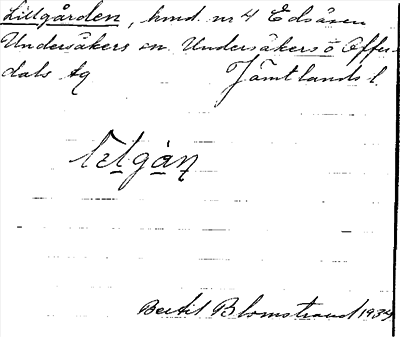 Lillgården, hmd. nr 4 Edsåsen
Undersåkers sn Undersåkers o Offer-
dals tg Jämtlands l.
Bertil Blomstrand 1934